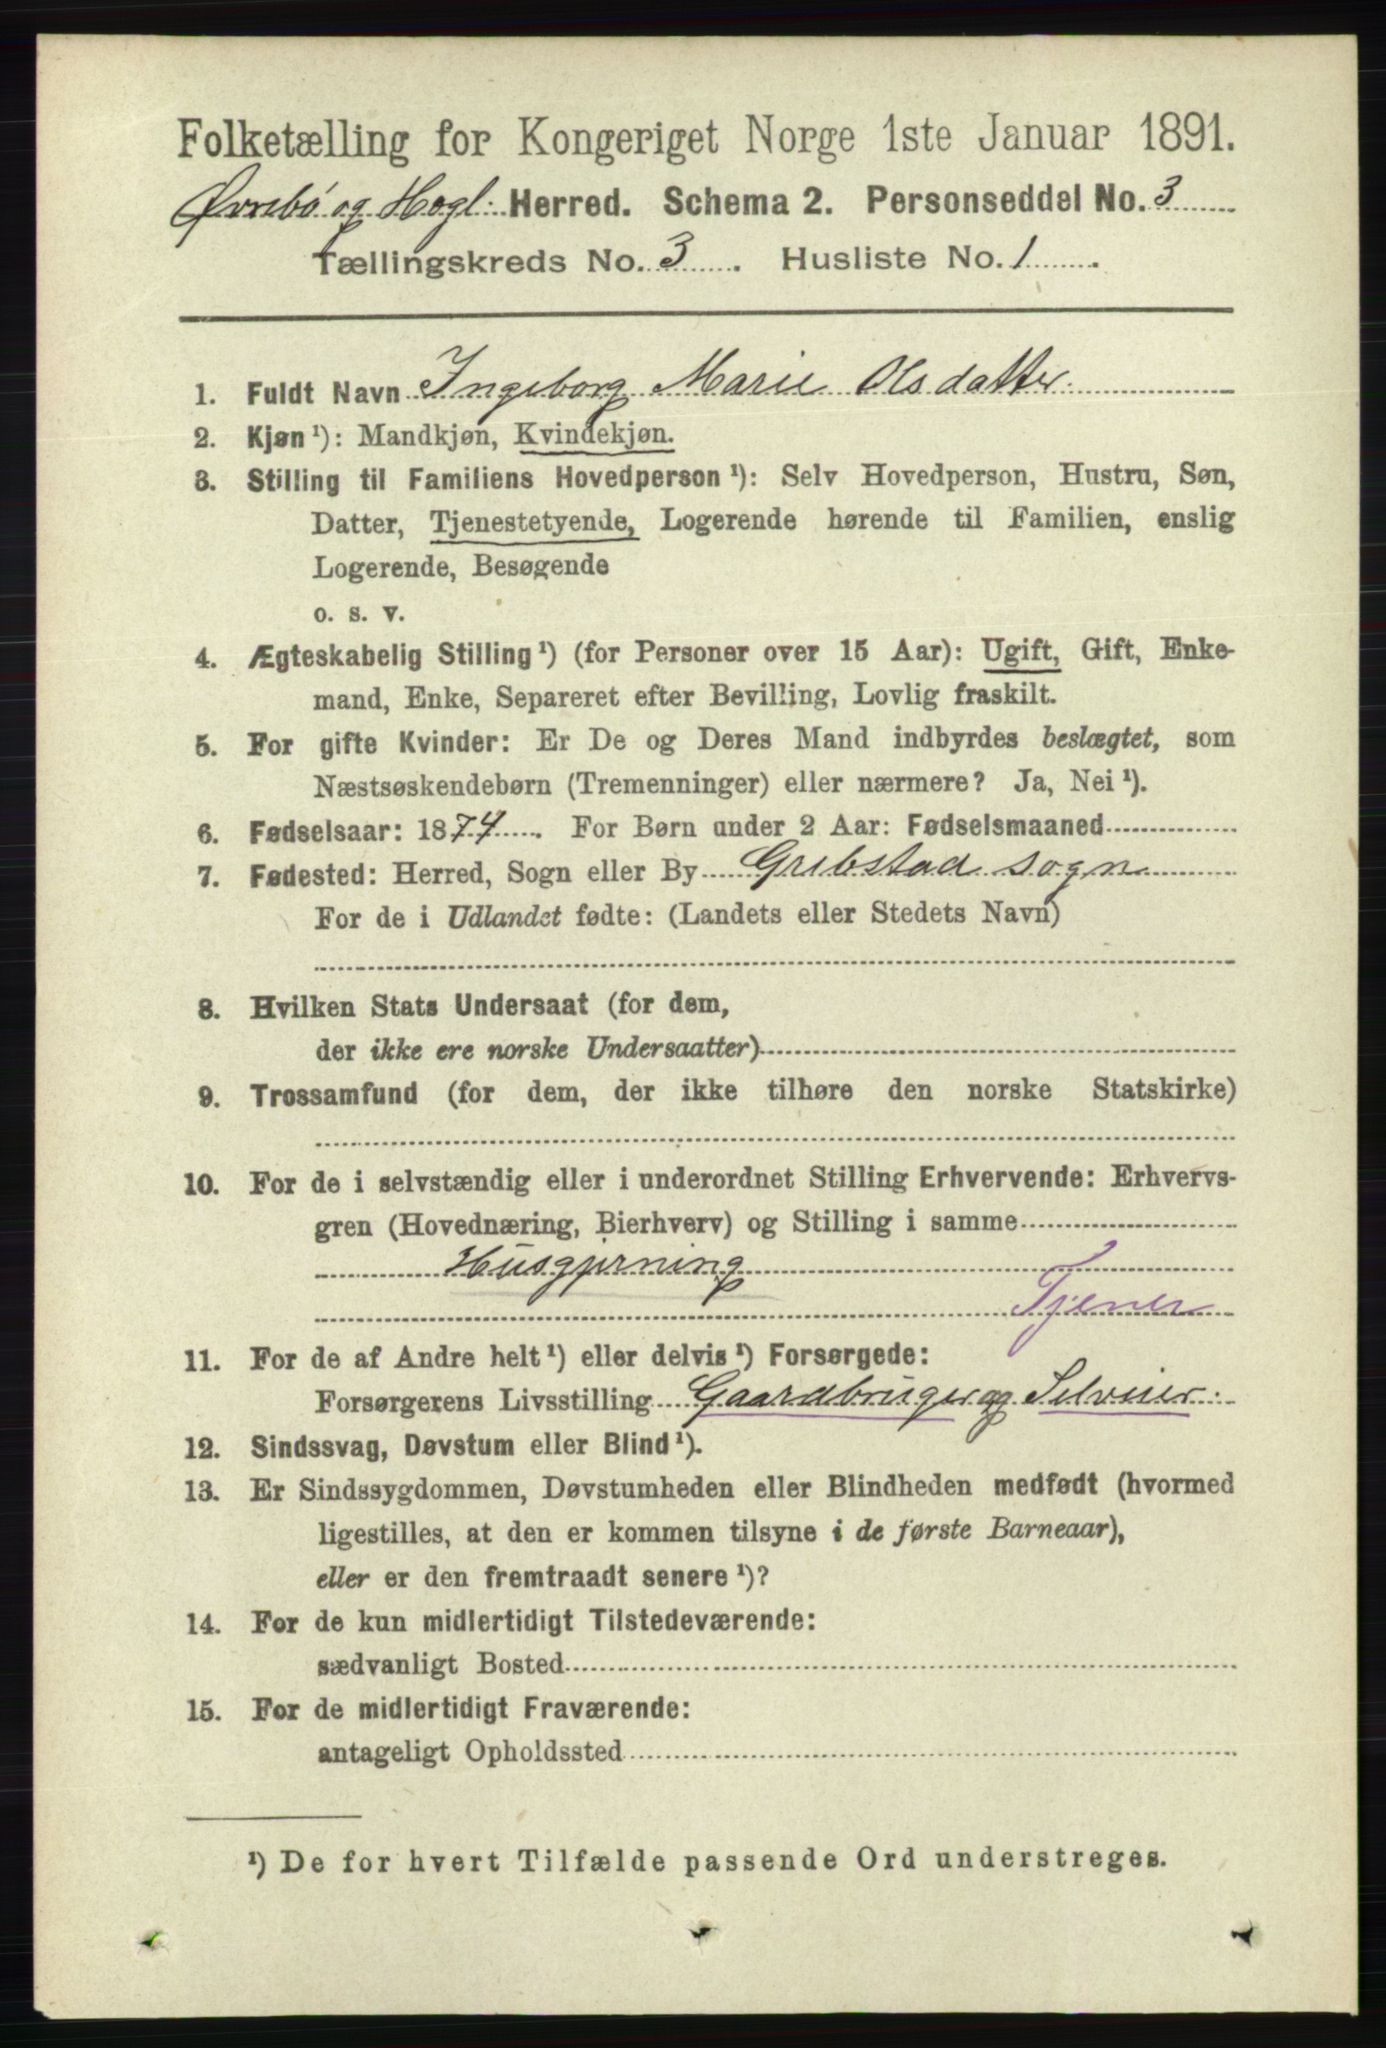 Folketælling for Kongeriget Norge 1ste Januar 1891.
Øvrebö og Hægl. Herred. Schema 2. Personseddel No. 3
Tællingskreds No. 3. Husliste No. 1.
1. Fuldt Navn Ingeborg Marie Olsdatter.
2. Kjøn ¹): Mandkjøn, Kvindekjøn.
3. Stilling til Familiens Hovedperson ¹): Selv Hovedperson, Hustru, Søn,
Datter, Tjenestetyende, Logerende hørende til Familien, enslig
Logerende, Besøgende
o. s. v.
4. Ægteskabelig Stilling ¹) (for Personer over 15 Aar): Ugift, Gift, Enke-
mand, Enke, Separeret efter Bevilling, Lovlig fraskilt.
5. For gifte Kvinder: Er De og Deres Mand indbyrdes beslægtet, som
Næstsøskendebørn (Tremenninger) eller nærmere? Ja, Nei ¹).
6. Fødselsaar: 1874. For Børn under 2 Aar: Fødselsmaaned
7. Fødested: Herred, Sogn eller By Grebstad sogn
For de i Udlandet fødte: (Landets eller Stedets Navn)
8. Hvilken Stats Undersaat (for dem,
der ikke ere norske Undersaatter)
9. Trossamfund (for dem, der ikke tilhøre den norske Statskirke)
10. For de i selvstændig eller i underordnet Stilling Erhvervende: Erhvervs-
gren (Hovednæring, Bierhverv) og Stilling i samme
Husgjerning
Tjener
11. For de af Andre helt ¹) eller delvis ¹) Forsørgede:
Forsørgerens Livsstilling Gaardbruger og Selveier.
12. Sindssvag, Døvstum eller Blind ¹).
13. Er Sindssygdommen, Døvstumheden eller Blindheden medfødt (hvormed
ligestilles, at den er kommen tilsyne i de første Barneaar),
eller er den fremtraadt senere ¹)?
14. For de kun midlertidigt Tilstedeværende:
sædvanligt Bosted
15. For de midlertidigt Fraværende:
antageligt Opholdssted
¹) De for hvert Tilfælde passende Ord understreges.